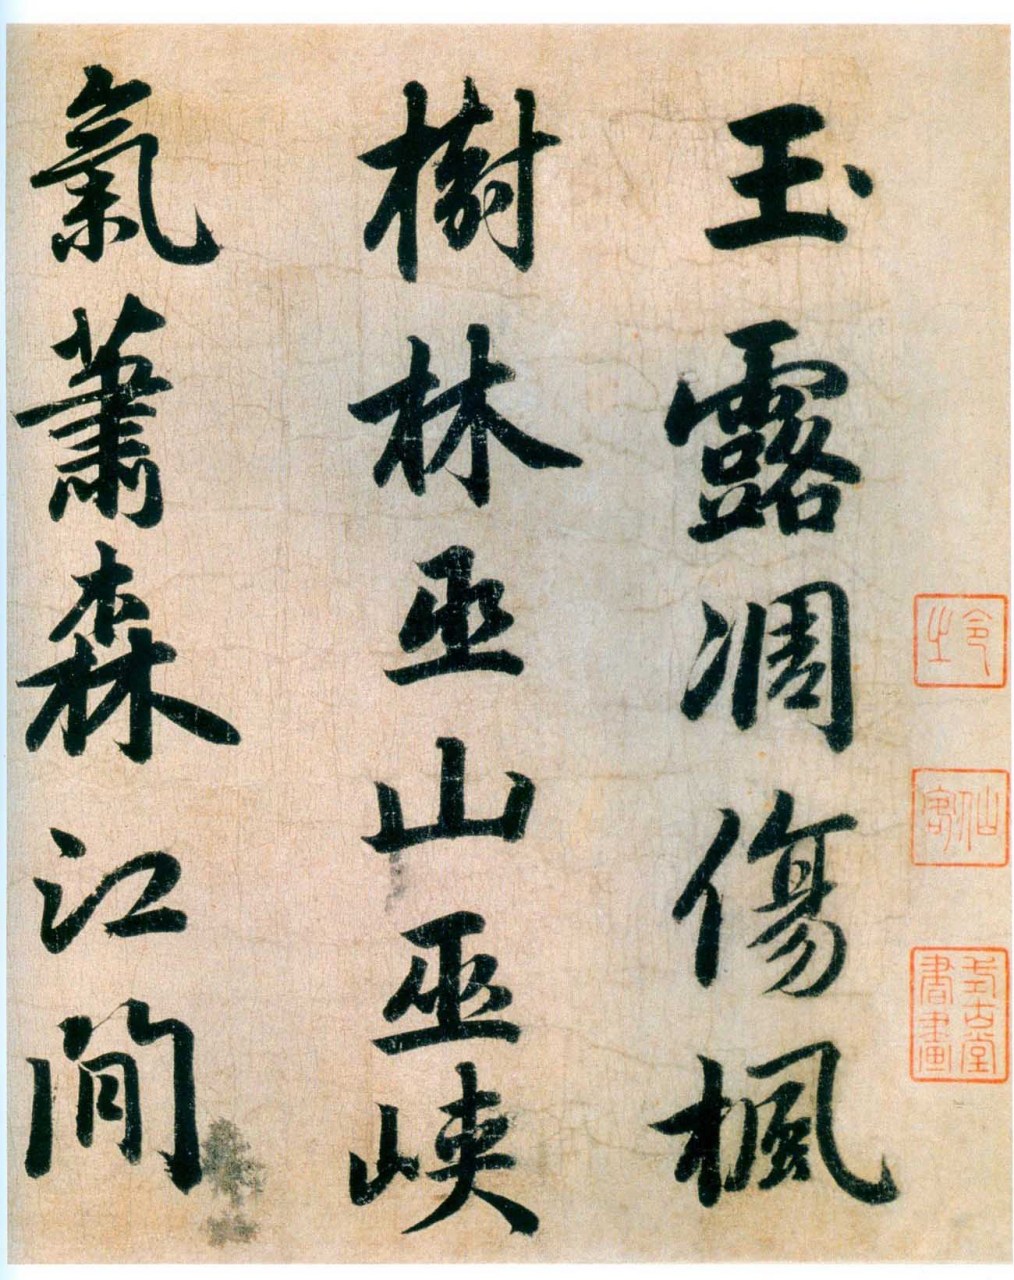 令之
仙客
式古堂
書畫
玉露凋傷楓
樹林巫山巫峽
氣蕭森江間